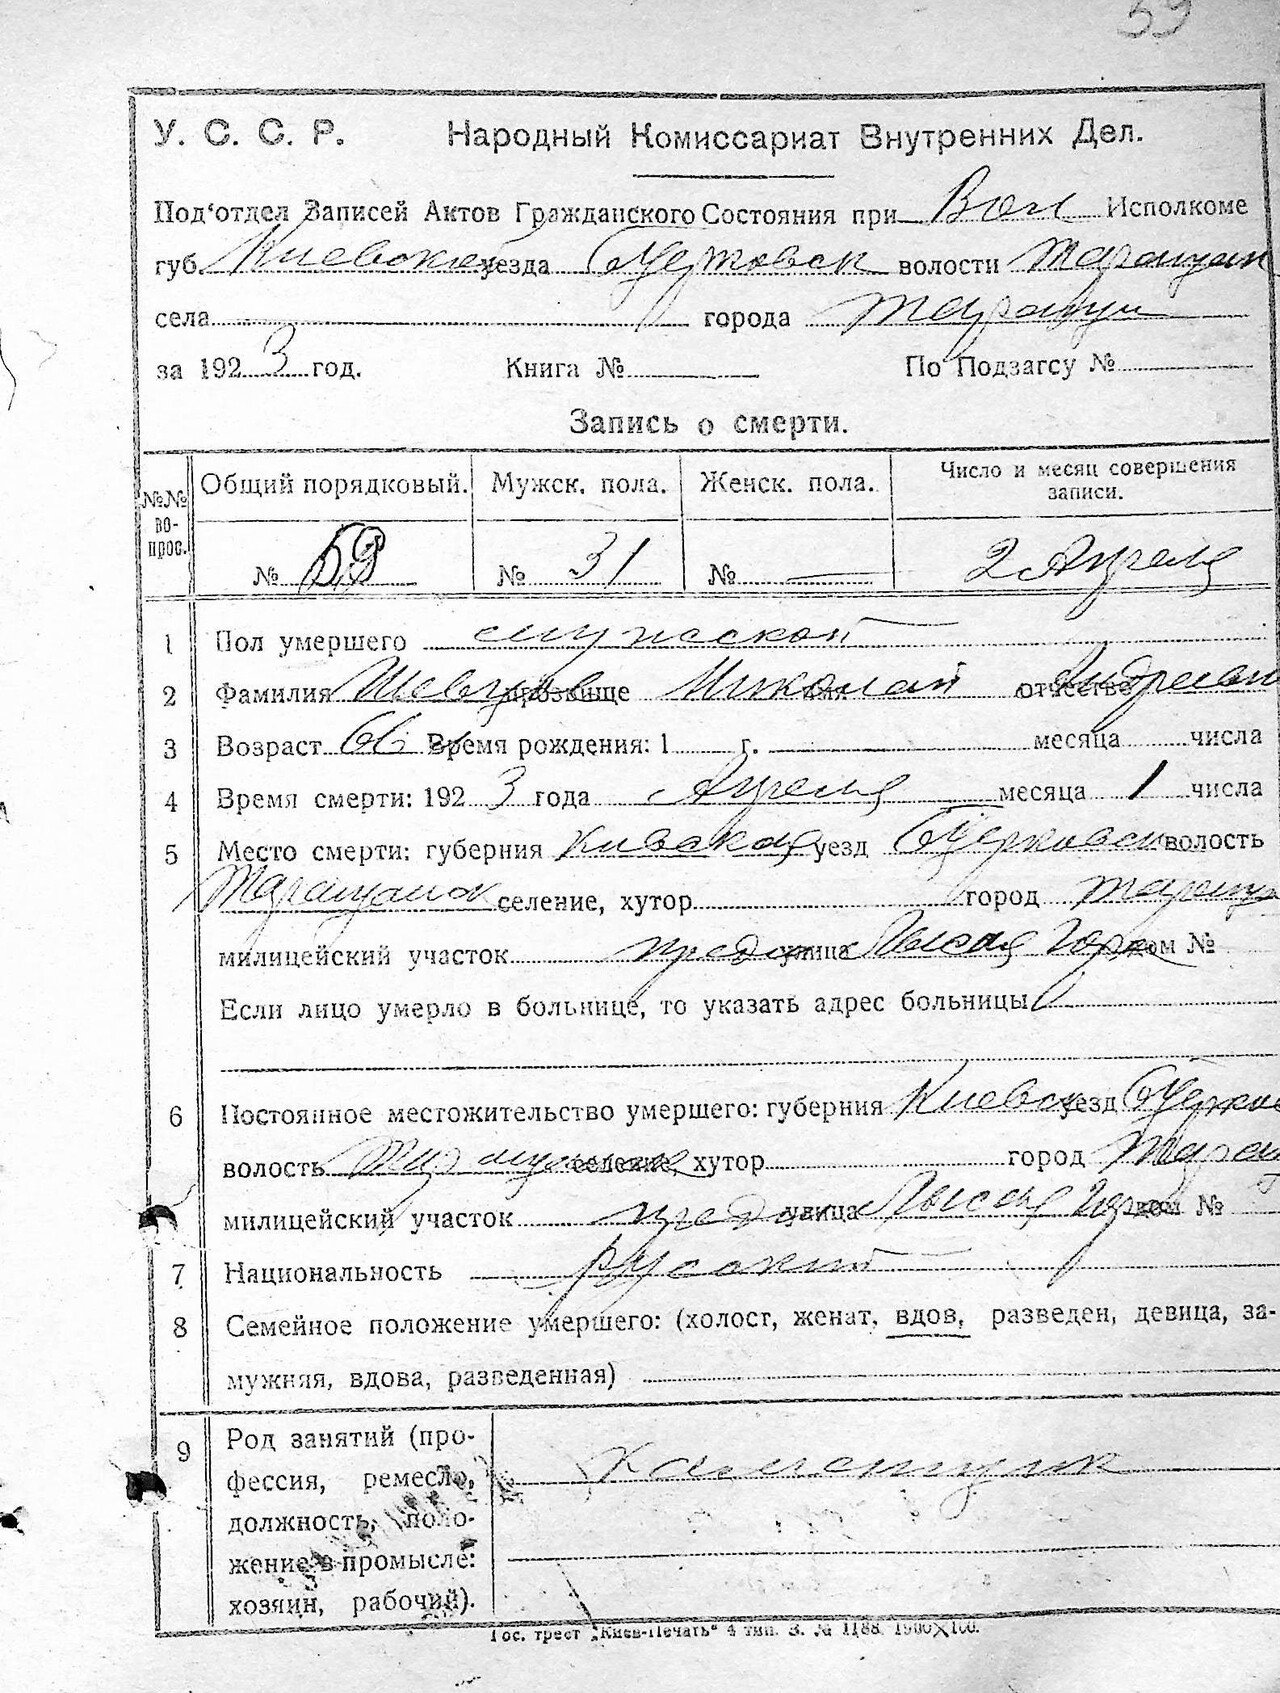 59
У. С. С. Р. Народный Комиссариат Внутренних Дел.
Под'отдел Записей Актов Гражданского Состояния при Вол Исполкоме
губ. Киевской уезда Б Церковск волости Таращан
села города Таращи
за 1923 год. Книга № По Подзагсу №
Запись о смерти.
№№ вопрос. Общий порядковый. Мужск. пола. Женск. пола. Число и месяц совершения записи.
№ 59 № 31 № — 2 Апреля
1 Пол умершего мужской
2 Фамилия прозвище Николай имя отчество Андреев
3 Возраст 66 Время рождения: 1 г. месяца числа
4 Время смерти: 1923 года Апреля месяца 1 числа
5 Место смерти: губерния Киевская уезд Б Церковск волость
Таращанск селение, хутор город Таращ
милицейский участок предм улица Лысая Гора дом №
Если лицо умерло в больнице, то указать адрес больницы
6 Постоянное местожительство умершего: губерния Киевск уезд Б Церков
волость Таращанск селение, хутор город Тараща
милицейский участок предм улица Лысая Гора дом №
7 Национальность русский
8 Семейное положение умершего: (холост, женат, вдов, разведен, девица, за-
мужняя, вдова, разведенная)
9 Род занятий (про-
фессия, ремесло, Каменщик
должность, поло-
жение в промысле:
хозяин, рабочий).
Гос. трест „Киев-Печать“ 4 тип. З. № 1188. 1900×100.